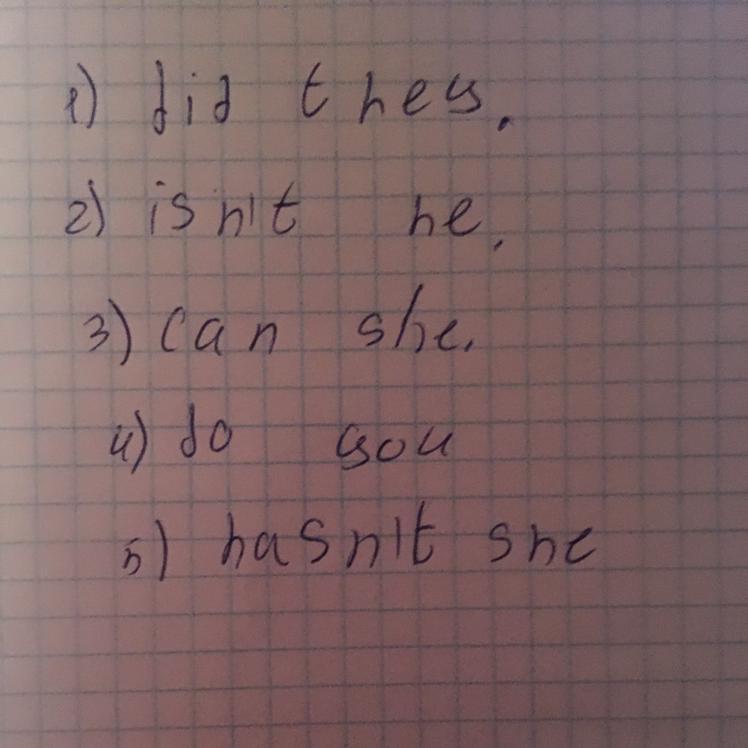 1) did they.
2) isn't he.
3) can she.
4) do you
5) hasn't she